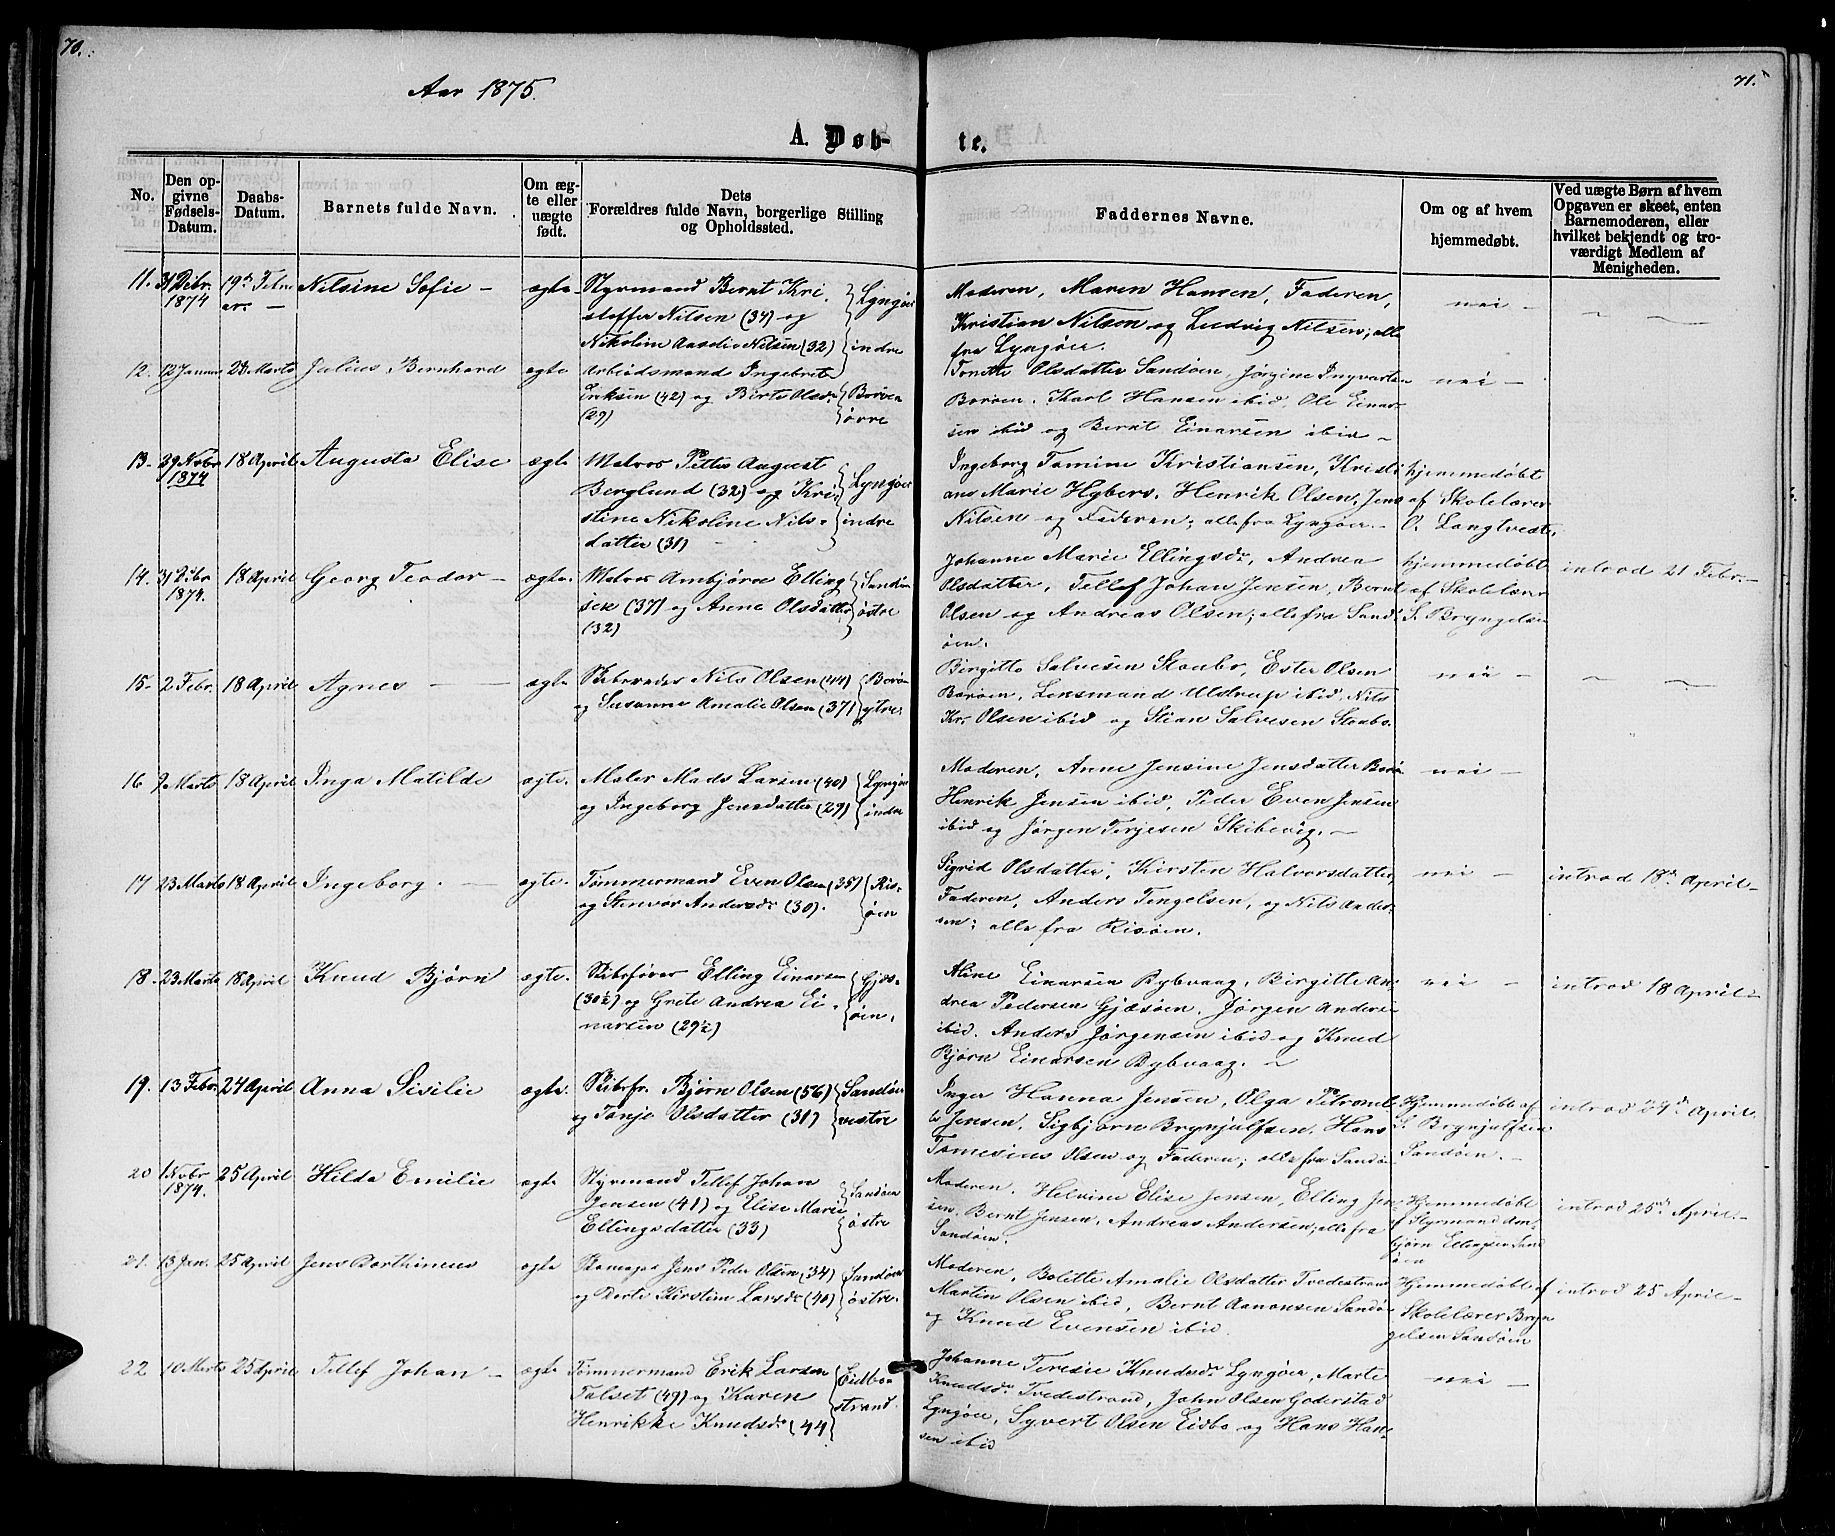 70.
71.
Aar 1875.
A. Døb-
te.
No.
Den op-
givne
Fødsels-
Datum.
Daabs-
Datum.
Barnets fulde Navn.
Om æg-
te eller
uægte
født.
Dets
Forældres fulde Navn, borgerlige Stilling
og Opholdssted.
Faddernes Navne.
Om og af hvem
hjemmedøbt.
Ved uægte Børn af hvem
Opgaven er skeet, enten
Barnemoderen, eller
hvilket bekjendt og tro-
værdigt Medlem af
Menigheden.
11.
31 Debr.
1874
19de Febru
ar. —
Nilsine Sofie —
ægte
Styrmand Bernt Kri
stoffer Nilsen (34) og
Nikoline Nilsen (32)
Lyngør
indre
Moderen, Maren Hansen, Faderen,
Kristian Nilsen og Ludvig Nilsen; alle
fra Lyngøer.
nei —
12.
12 Januar
28 Marts
Julius Bernhard
ægte
Arbeidsmand Ingebret
Eriksen (42) og Birte Olsdr
(29)
Borøen
Tonette Olsdatter Sandøen, Jørgine Ingvarsen
Borøen, Karl Hansen ibid, Ole Einar-
sen ibid og Bernt Einarsen ibid —
nei —
13.
29 Novbr
1874
18 April
Augusta Elise
ægte
Matros Petter August
Berglund (32) og Kri-
stine Nikoline Nils-
datter (31)
Lyngør
indre
Ingeborg Tomine Kristiansen, Kristi
ane Marie Hybers, Henrik Olsen, Jens
Nilsen og Faderen; alle fra Lyngøer.
hjemmedøbt
af Skolelærer
O. Langtvedt.
14.
31 Debr
1874.
18 April
Georg Teodor —
ægte.
Matros Anbjørn Elling
sen (37) og Anne Olsdatter
(32)
Sandøen
østre
Johanne Marie Ellingsdr, Andrea
Olsdatter, Tellef Johan Jensen, Bernt
Olsen og Andreas Olsen; alle fra Sand-
øen.
hjemmedøbt
af Skolelærer
S. Bryngelsen
introd 21 Febr. —
15.
2 Febr.
18 April
Agnes —
ægte
Skibsreder Nils Olsen (44)
og Susanne Amalie Olsen (37)
Borøen
ytre.
Birgitte Salvesen Staubø, Ester Olsen
Borøen, Lensmand Ulstrup ibid, Nils
Kr. Olsen ibid og Stian Salvesen Staubø.
nei —
16
2 Marts
18 April
Inga Matilde
ægte.
Maler Mads Larsen (40)
og Ingeborg Jensdatter (29)
Lyngør
indre
Moderen, Anne Jensine Jensdatter Borø
Henrik Jensen ibid, Peder Even Jensen
ibid og Jørgen Terjesen Skibevig. —
nei —
17
23 Marts
18 April
Ingeborg. —
ægte.
Tømmermand Even Olsen (35)
og Stenvor Andersdr (30).
Ris-
øen
Sigrid Olsdatter, Kirsten Halvorsdatter,
Faderen, Anders Tengelsen, og Nils Ander-
sen; alle fra Risøen.
nei —
introd 18de April —
18.
23 Marts
18 April
Knud Bjørn
ægte.
Skibsfører Elling Einarsen
(30½) og Grete Andrea Ei-
narsen (29½)
Gjæs-
øen.
Aline Einarsen Dybvaag, Birgitte An-
drea Pedersen Gjæsøen, Jørgen Anders
ibid. Anders Jørgensen ibid og Knud
Bjørn Einarsen Dybvaag. —
nei —
introd 18 April —
19.
13 Febr.
24 April
Anna Sisilie
ægte.
Skibsfr. Bjørn Olsen (56)
og Tonje Olsdatter (31)
Sandøen
vestre
Inger Hanna Jensen, Olga Petronel
le Jensen, Sigbjørn Brynjulfsen, Hans
Tomesines Olsen og Faderen; alle fra Sandø
Hjemmedøbt af
S. Brynjulfsen
Sandøen. —
introd 24de April
20
1 Novbr
1874.
25 April
Hilda Emilie
ægte
Styrmand Tellef Johan
Jensen (41) og Elise Marie
Ellingsdatter (33)
Sandøen
østre
Moderen, Helvine Elise Jensen, Elling Jen
sen, Bernt Jensen, Andreas Andersen; alle fra
Sandøen.
Hjemmedøbt
af Styrmand An
bjørn Ellingsen Sand
øen
introd 25de April. —
21.
13 Jan.
25 April
Jens Bertinius
ægte
Jens Peder Olsen (34)
og Dorte Kirstine Larsdr (40)
Sandøen
østre.
Moderen, Bolette Amalie Olsdatter Tvedestrand
Martin Olsen ibid, Bernt Aanonsen Sandø
og Knud Evensen ibid.
Hjemmedøbt af
Skolelærer Bryn
gelsen Sandøen
introd 25 April —
22
10 Marts
25 April
Tellef Johan —
ægte
Tømmermand Erik Larsen
Talset (49) og Karen
Henrikke Knudsdr (44
Eidbo
strand.
Johanne Teresie Knudsdr Lyngøer, Marte
Knudsdr Tvedestrand, John Olsen Goderstad
Lyngøer, Syvert Olsen Eidbo og Hans Han-
sen ibid
nei —